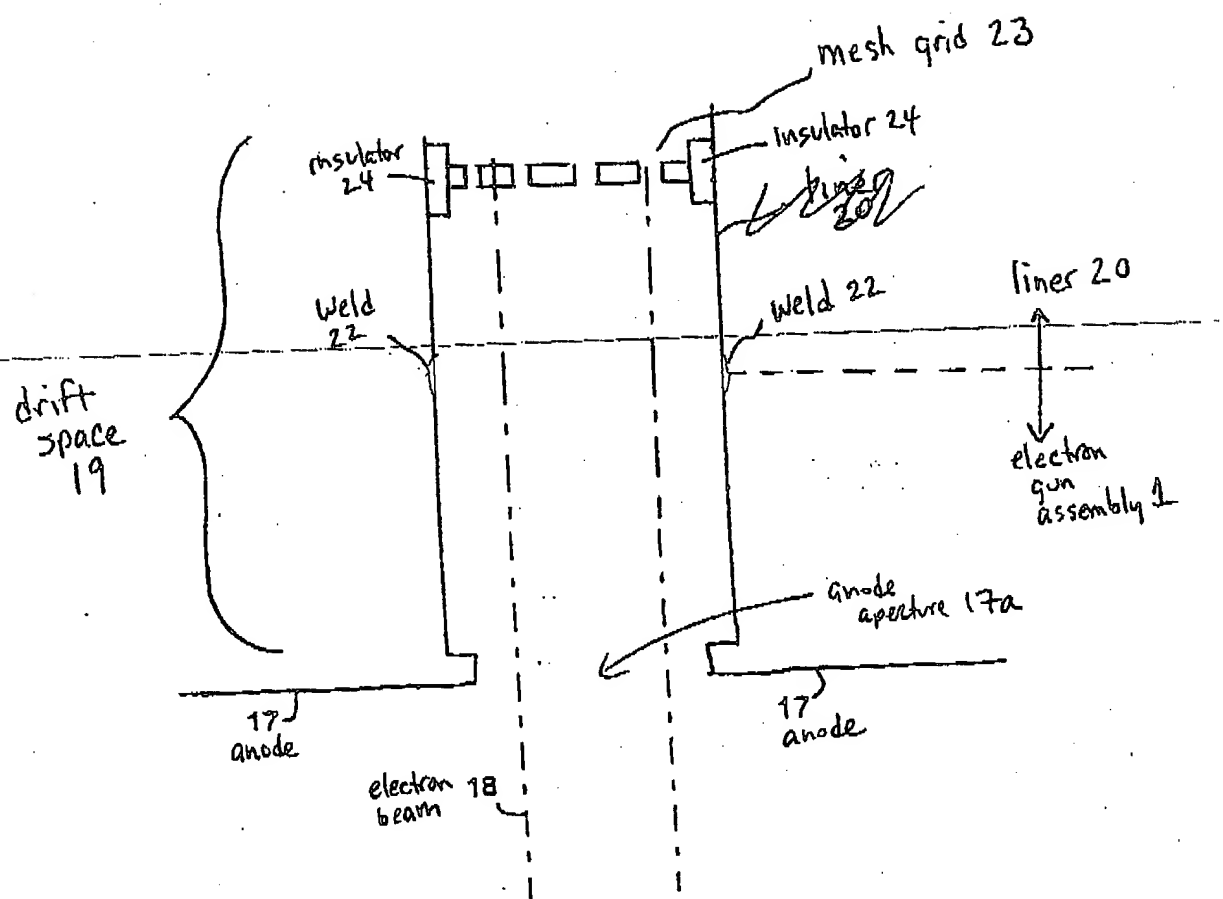 mesh grid 23
insulator
24
insulator 24
liner
20
liner 20
weld
22
weld 22
drift
space
19
electron
gun
assembly 1
anode
aperture 17a
17
anode
17
anode
electron 18
beam